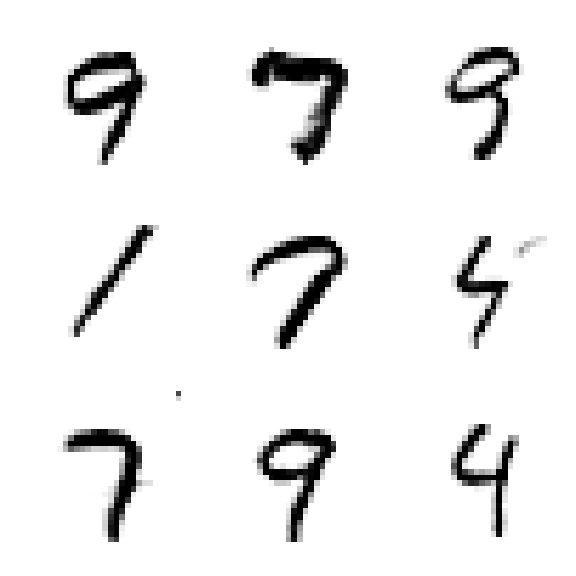 9 7 9
1 7 5
7 9 4